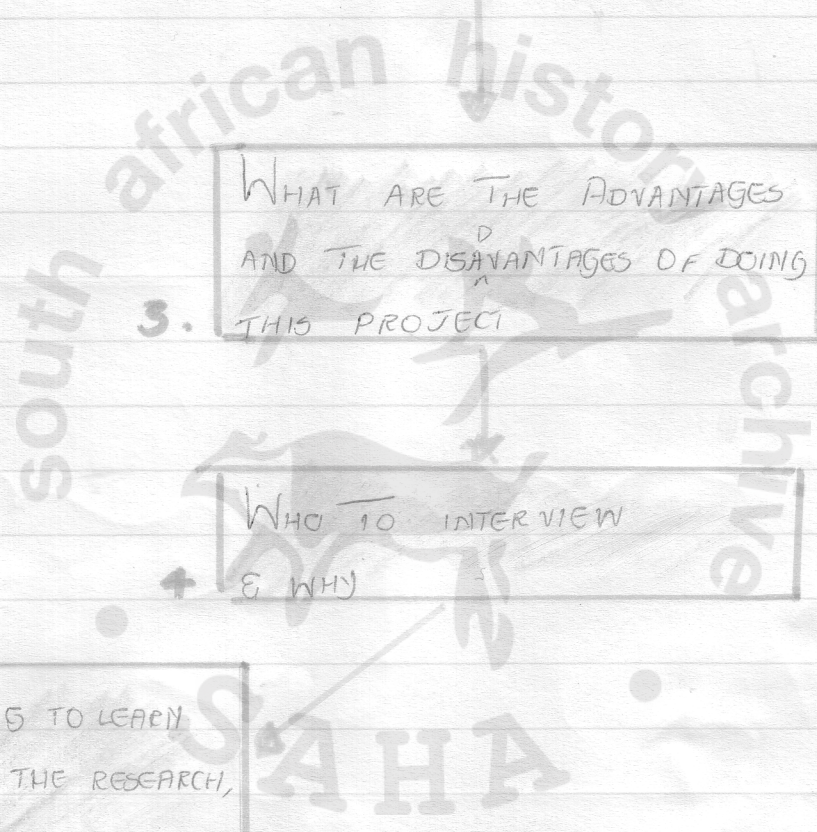 south african history archive
WHAT ARE THE ADVANTAGES
D
AND THE DISAVANTAGES OF DOING
3. THIS PROJECT
WHO TO INTERVIEW
4 & WHY
G TO LEARN
THE RESEARCH,
SAHA